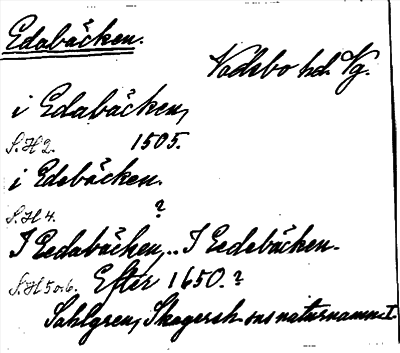 Edabäcken.
Vadsbo hd. Vg.
i Edabäcken,
S.H 2. 1505.
i Edebäcken.
S.H 4. ?
I Eedabäcken, .. I Eedebäcken.
S.H 5 o. 6. Efter 1650. ?
Sahlgren, Skagersh ... naturnamn I.